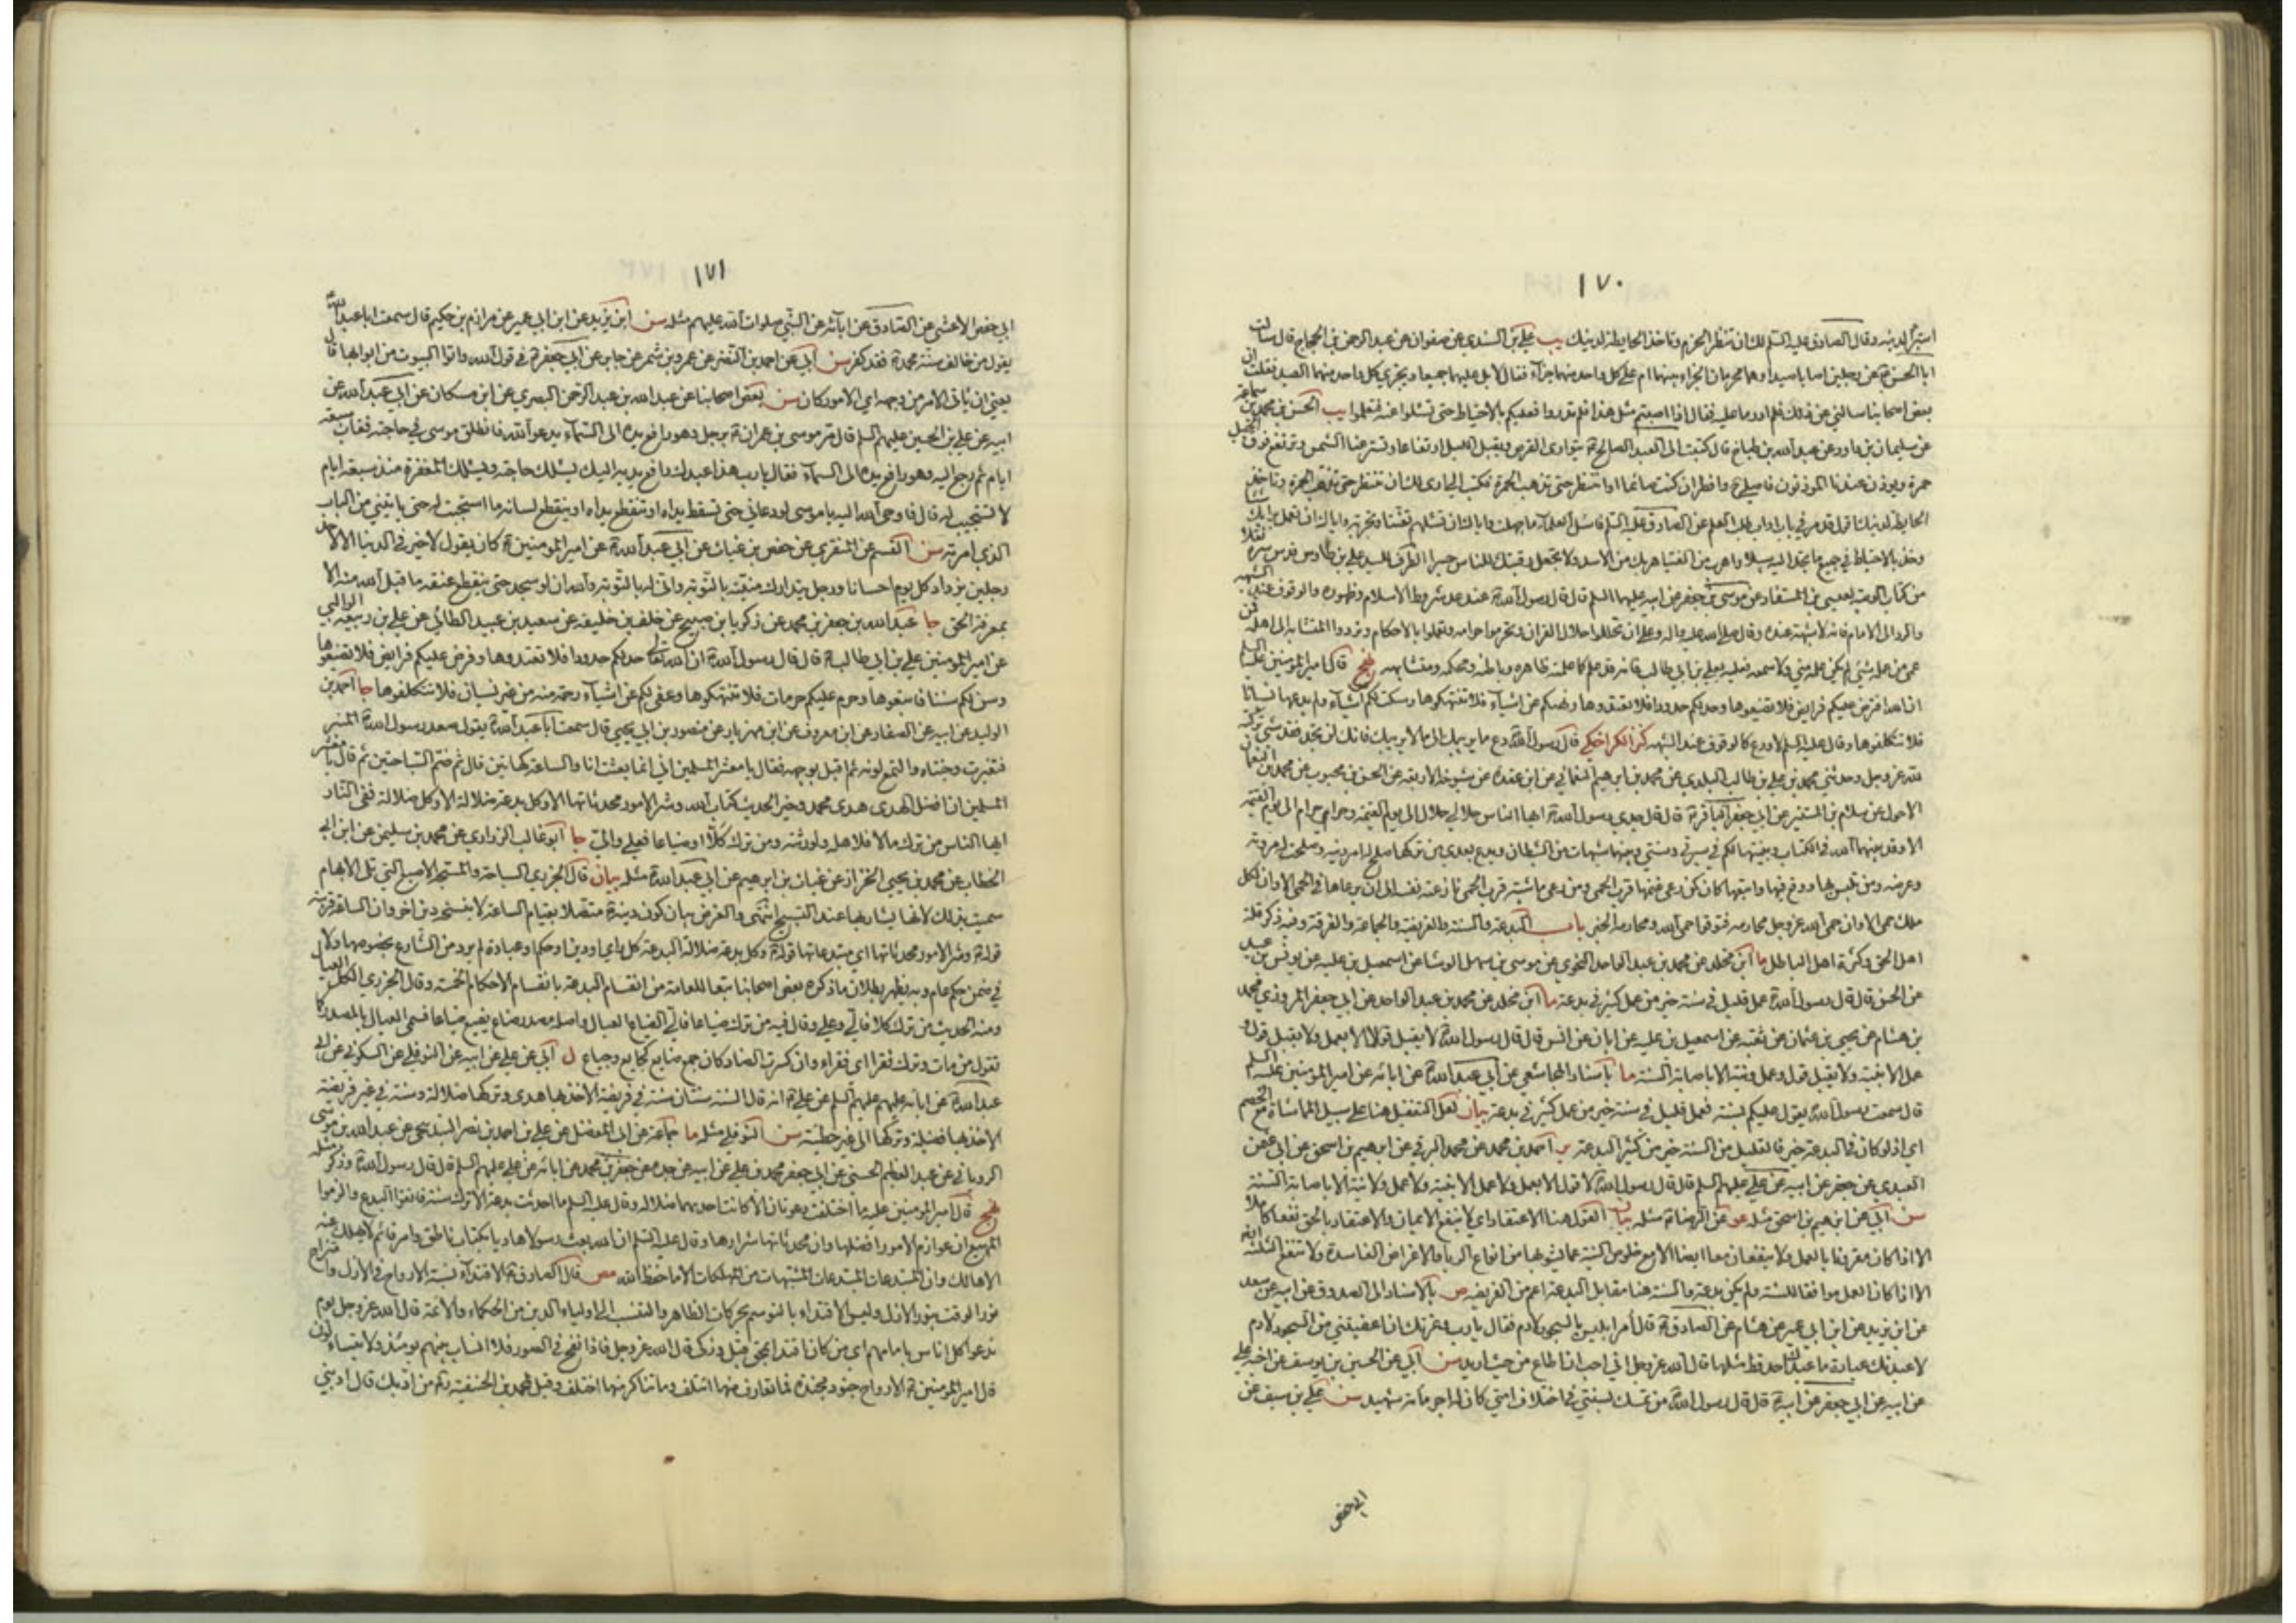 ١٧٠
استبرأ لدينه وقال الصادق عليه السلم لك ان تنظر الحزم وتأخذ الحايطة لدينك يب علي بن السندي عن صفوان عن عبد الرحمن بن الحجاج قال سالت
ابا الحسن عن رجلين اصابا صيدا وهما محرمان الجزاء بينهما ام على كل واحد منهما جزآء فقال لا بل عليهما جميعا ويجزي كل واحد منهما الصيد فقلت ان
بعض اصحابنا سالني عن ذلك فلم ادر ما عليه فقال اذا اصبتم مثل هذا فلم تدروا فعليكم بالاحتياط حتى تسئلوا عنه فتعلموا يب الحسن بن محمد بن سماعة
عن سليمان بن داود عن عبد الله بن وضاح قال كتبت الى العبد الصالح يتوارى القرص ويقبل الليل ارتفاعا وتستر عنا الشمس وترتفع فوق الجبل
حمرة ويوذن عندنا الموذنون فاصلي ح وافطر ان كنت صائما او انتظر حتى تذهب الحمرة فكتب الي ارى لك ان تنتظر حتى تذهب الحمرة وتاخذ
الحايطة لدينك اقول قد مر في باب اداب طلب العلم عن الصادق عليه السلم فاسئل العلمآء ما جهلت واياك ان تسئلهم تعنتا وتجربة واياك ان تعمل برايك شيئا
وخذ بالاحتياط في جميع ما تجد اليه سبيلا واهرب من الفتيا هربك من الاسد ولا تجعل رقبتك للناس جسرا الطرف للسيد علي بن طاوس قدس سره نقلا
من كتاب الوصية لعيسى بن المستفاد عن موسى بن جعفر عن ابيه عليهما السلم قال قال رسول الله عند عد شروط الاسلام وعهوده والوقوف عند الشبهة
والرد الى الامام فانه لا شبهة عنده وقال صلى الله عليه واله وعلى ان تحللوا حلال القران وتحرموا حرامه وتعملوا بالاحكام وتردوا المتشابه الى اهله فمن
عمي من علمه شيئ لم يكن علمه مني ولا سمعه فعليه بعلي بن ابي طالب فانه قد علم كما علمته ظاهره وباطنه ومحكمه ومتشابهه نهج قال امير المومنين عليه السلم
ان الله افترض عليكم فرايض فلا تضيعوها وحد لكم حدودا فلا تعتدوها ونهيكم عن اشيآء فلا تنتهكوها وسكت لكم عن اشيآء ولم يدعها نسيانا
فلا تتكلفوها وقال عليه السلم لا ورع كالوقوف عند الشبهه كنز الكراجكي قال رسول الله دع ما يريبك الى ما لا يريبك فانك لن تجد فقد شيئ تركته
لله عز وجل وحدثني محمد بن علي بن طالب البلدي عن محمد بن ابراهيم النعماني عن ابن عقدة عن شيوخه الاربعة عن الحسن بن محبوب عن محمد بن النعمان
الاحول عن سلام بن المستنير عن ابي جعفر الباقر قال قال جدي رسول الله ايها الناس حلالي حلال الى يوم القيمة وحرامي حرام الى يوم القيمة
الا وقد بينهما الله في الكتاب وبينتهما لكم في سيرتي وسنتي وبينهما شبهات من الشيطان وبدع بعدي من تركها صلح له امر دينه وصلحت له مروته
وعرضه ومن تلبس بها ووقع فيها واتبعها كان كمن رعى غنمه قرب الحمى ومن رعى ماشيته قرب الحمى نازعته نفسه الى ان يرعاها في الحمى الا وان لكل
ملك حمى الا وان حمى الله عز وجل محارمه فتوقوا حمى الله ومحارمه الخبر باب البدعة والسنة والفريضة والجماعة والفرقة وفيه ذكر قلة
اهل الحق وكثرة اهل الباطل ما ابن مخلد عن محمد بن عبد الواحد النحوي عن موسى بن سهل الوشا عن اسمعيل بن علية عن يونس بن عبيد
عن الحسن قال قال رسول الله عمل قليل في سنة خير من عمل كثير في بدعة ما ابن مخلد عن محمد بن عبد الواحد عن ابي جعفر المروزي محمد
بن هشام عن يحيى بن عثمان عن ثقبه عن اسمعيل بن علية عن ابان عن انس قال قال رسول الله لا يقبل قول الا بعمل ولا يقبل قول و
عمل الا بنية ولا يقبل قول وعمل ونية الا باصابة السنة ما باسناد المجاشعي عن ابي عبد الله عن ابائه عن امير المومنين عليه السلم
قال سمعت رسول الله يقول عليكم بسنة فعمل قليل في سنة خير من عمل كثير في بدعة بيان لعل التفضيل هنا على سبيل المماشاة مع الخصم
اي لو كان في البدعة خير فالقليل من السنة خير من كثير البدعة ير احمد بن محمد عن محمد البرقي عن ابرهيم بن اسحق عن ابي عثمن
العبدي عن جعفر عن ابيه عن علي عليهم السلم قال قال رسول الله لا قول الا بعمل ولا عمل الا بنية ولا عمل ولا نية الا باصابة السنة
سن ابي عن ابرهيم بن اسحق مثله غو عن الرضا مثله بيان القول هنا الاعتقاد اي لا ينفع الايمان والاعتقاد بالحق نفعا كاملا
الا اذا كان مقرونا بالعمل ولا ينفعان معا ايضا الا مع خلوص النية عما يشوبها من انواع الريا والاغراض الفاسدة ولا تنفع الثلثة ايضا
الا اذا كان العمل موافقا للسنة ولم يكن بدعة والسنة هنا مقابل البدعة اعم من الفريضة ص بالاسناد الى الصدوق عن ابيه عن سعد
عن ابن يزيد عن ابن ابي عمير عن هشام عن الصادق قال أمر ابليس بالسجود لادم فقال يارب وعزتك ان اعفيتني من السجود لادم
لاعبدنك عبادة ما عبدك احد قط مثلها قال الله عز وجل اني احب ان اطاع من حيث اريد سن ابي عن الحسين بن يوسف عن اخيه علي
عن ابيه عن ابي جعفر عن ابيه قال قال رسول الله من تمسك بسنتي في اختلاف امتي كان له اجر مائة شهيد سن علي بن سيف عن
ابي حفص
١٧١
ابي حفص الاعشى عن الصادق عن ابآئه عن النبي صلوات الله عليهم مثله سن ابن يزيد عن ابن ابي عمير عن مرازم بن حكيم قال سمعت ابا عبد الله
يقول من خالف سنة محمد فقد كفر سن ابي عن احمد بن النضر عن عمرو بن شمر عن جابر عن ابي جعفر في قول الله واتوا البيوت من ابوابها قال
يعني ان ياتي الامر من وجهه اي الامور كان سن بعض اصحابنا عن عبد الله بن عبد الرحمن البصري عن ابن مسكان عن ابي عبد الله عن
ابيه عن علي بن الحسين عليهم السلم قال مر موسى بن عمران برجل وهو رافع يده الى السمآء يدعو الله فانطلق موسى في حاجته فغاب سبعة
ايام ثم رجع اليه وهو رافع يده الى السمآء فقال يارب هذا عبدك رافع يديه اليك يسئلك حاجته ويسئلك المغفرة منذ سبعة ايام
لا تستجيب له قال فاوحى الله اليه يا موسى لو دعاني حتى تسقط يداه او تنقطع يداه او ينقطع لسانه ما استجبت له حتى ياتيني من الباب
الذي امرته سن القسم عن المنقري عن حفص بن غياث عن ابي عبد الله عن امير المومنين كان يقول لا خير في الدنيا الا لاحد
رجلين يزداد كل يوم احسانا ورجل يتدارك منيته بالتوبة وانى له بالتوبة والله ان لو سجد حتى ينقطع عنقه ما قبل الله منه الا
بمعرفة الحق جا عبد الله بن جعفر بن محمد عن زكريا بن صبيح عن خلف بن خليفة عن سعيد بن عبيد الطائي عن علي بن ربيعة الوالبي
عن امير المومنين علي بن ابي طالب قال قال رسول الله ان الله تعالى حد لكم حدودا فلا تعتدوها وفرض عليكم فرايض فلا تضيعوها
وسن لكم سننا فاتبعوها وحرم عليكم حرمات فلا تنتهكوها وعفى لكم عن اشيآء رحمة منه من غير نسيان فلا تتكلفوها جا احمد بن
الوليد عن ابيه عن الصفار عن ابن معروف عن ابن مهزيار عن منصور بن ابي يحيى قال سمعت ابا عبد الله يقول صعد رسول الله المنبر
فتغيرت وجنتاه والتمع لونه ثم اقبل بوجهه فقال يا معشر المسلمين اني انما بعثت انا والساعة كهاتين قال ثم ضم السباحتين ثم قال يا معشر
المسلمين ان افضل الهدى هدى محمد وخير الحديث كتاب الله وشر الامور محدثاتها الا وكل بدعة ضلالة الا وكل ضلالة ففي النار
ايها الناس من ترك مالا فلاهله ولورثته ومن ترك كلا او ضياعا فعلي والي جا ابو غالب الزراري عن محمد بن سليمن عن ابن ابي
الخطاب عن محمد بن يحيى الخزاز عن غياث بن ابرهيم عن ابي عبد الله مثله بيان قال الجزري السباحة والمسبحة الاصبع التي تلي الابهام
سميت بذلك لانها يشار بها عند التسبيح انتهى والغرض بيان كون دينه متصلا بقيام الساعة لا ينسخه دين اخر وان الساعة قريبة
قوله وشر الامور محدثاتها اي مبتدعاتها قوله وكل بدعة ضلالة البدعة كل راي او دين او حكم او عبادة لم يرد من الشارع بخصوصها ولا
في ضمن حكم عام وبه يظهر بطلان ما ذكره بعض اصحابنا تبعا للعامة من انقسام البدعة بانقسام الاحكام الخمسة وقال الجزري الكل العيال
ومنه الحديث من ترك كلا فالي وعلي وقال فيه من ترك ضياعا فالي الضياع العيال واصله مصدر ضاع يضيع ضياعا فسمى العيال بالمصدر كما
تقول من مات وترك فقرا اي فقراء وان كسرت الضاد كان جمع ضايع كجايع وجياع ل ابي عن علي عن ابيه عن النوفلي عن السكوني عن ابي
عبد الله عن ابائه عليهم السلم عن علي انه قال السنة سنتان سنة في فريضة الاخذ بها هدى وتركها ضلالة وسنة في غير فريضة
الاخذ بها فضيلة وتركها الى غير خطيئة سن النوفلي مثله ما جماعة عن ابي المفضل عن علي بن احمد بن نصر البندنيجي عن عبد الله بن موسى
الروياني عن عبد العظيم الحسني عن ابي جعفر محمد بن علي عن ابيه عن جده عن جعفر بن محمد عن ابائه عن علي عليهم السلم قال قال رسول الله وذكر مثله
نهج قال امير المومنين عليه ما اختلفت دعوتان الا كانت احديهما ضلالة وقال عليه السلم ما احدثت بدعة الا ترك بها سنة فاتقوا البدع والزموا
المهيع ان عوازم الامور افضلها وان محدثاتها شرارها وقال عليه السلم ان الله بعث رسولا هاديا بكتاب ناطق وامر قائم لا يهلك عنه
الا هالك وان المبتدعات المشبهات من المهلكات الا ما حفظ الله مص قال الصادق الاقتدآء نسبة الارواح في الازل وامتزاج
نور الوقت بنور الازل وليس الاقتداء بالتوسم بحركات الظاهر والتنسب الى اولياء الدين من الحكماء والائمة قال الله عز وجل يوم
ندعوا كل اناس بامامهم اي من كان اقتدى بمحق قبل وزكى قال الله عز وجل فاذا نفخ في الصور فلا انساب بينهم يومئذ ولا يتساءلون
قال امير المومنين الارواح جنود مجندة فما تعارف منها ائتلف وما تناكر منها اختلف وقيل لمحمد بن الحنفية من ادبك قال ادبني